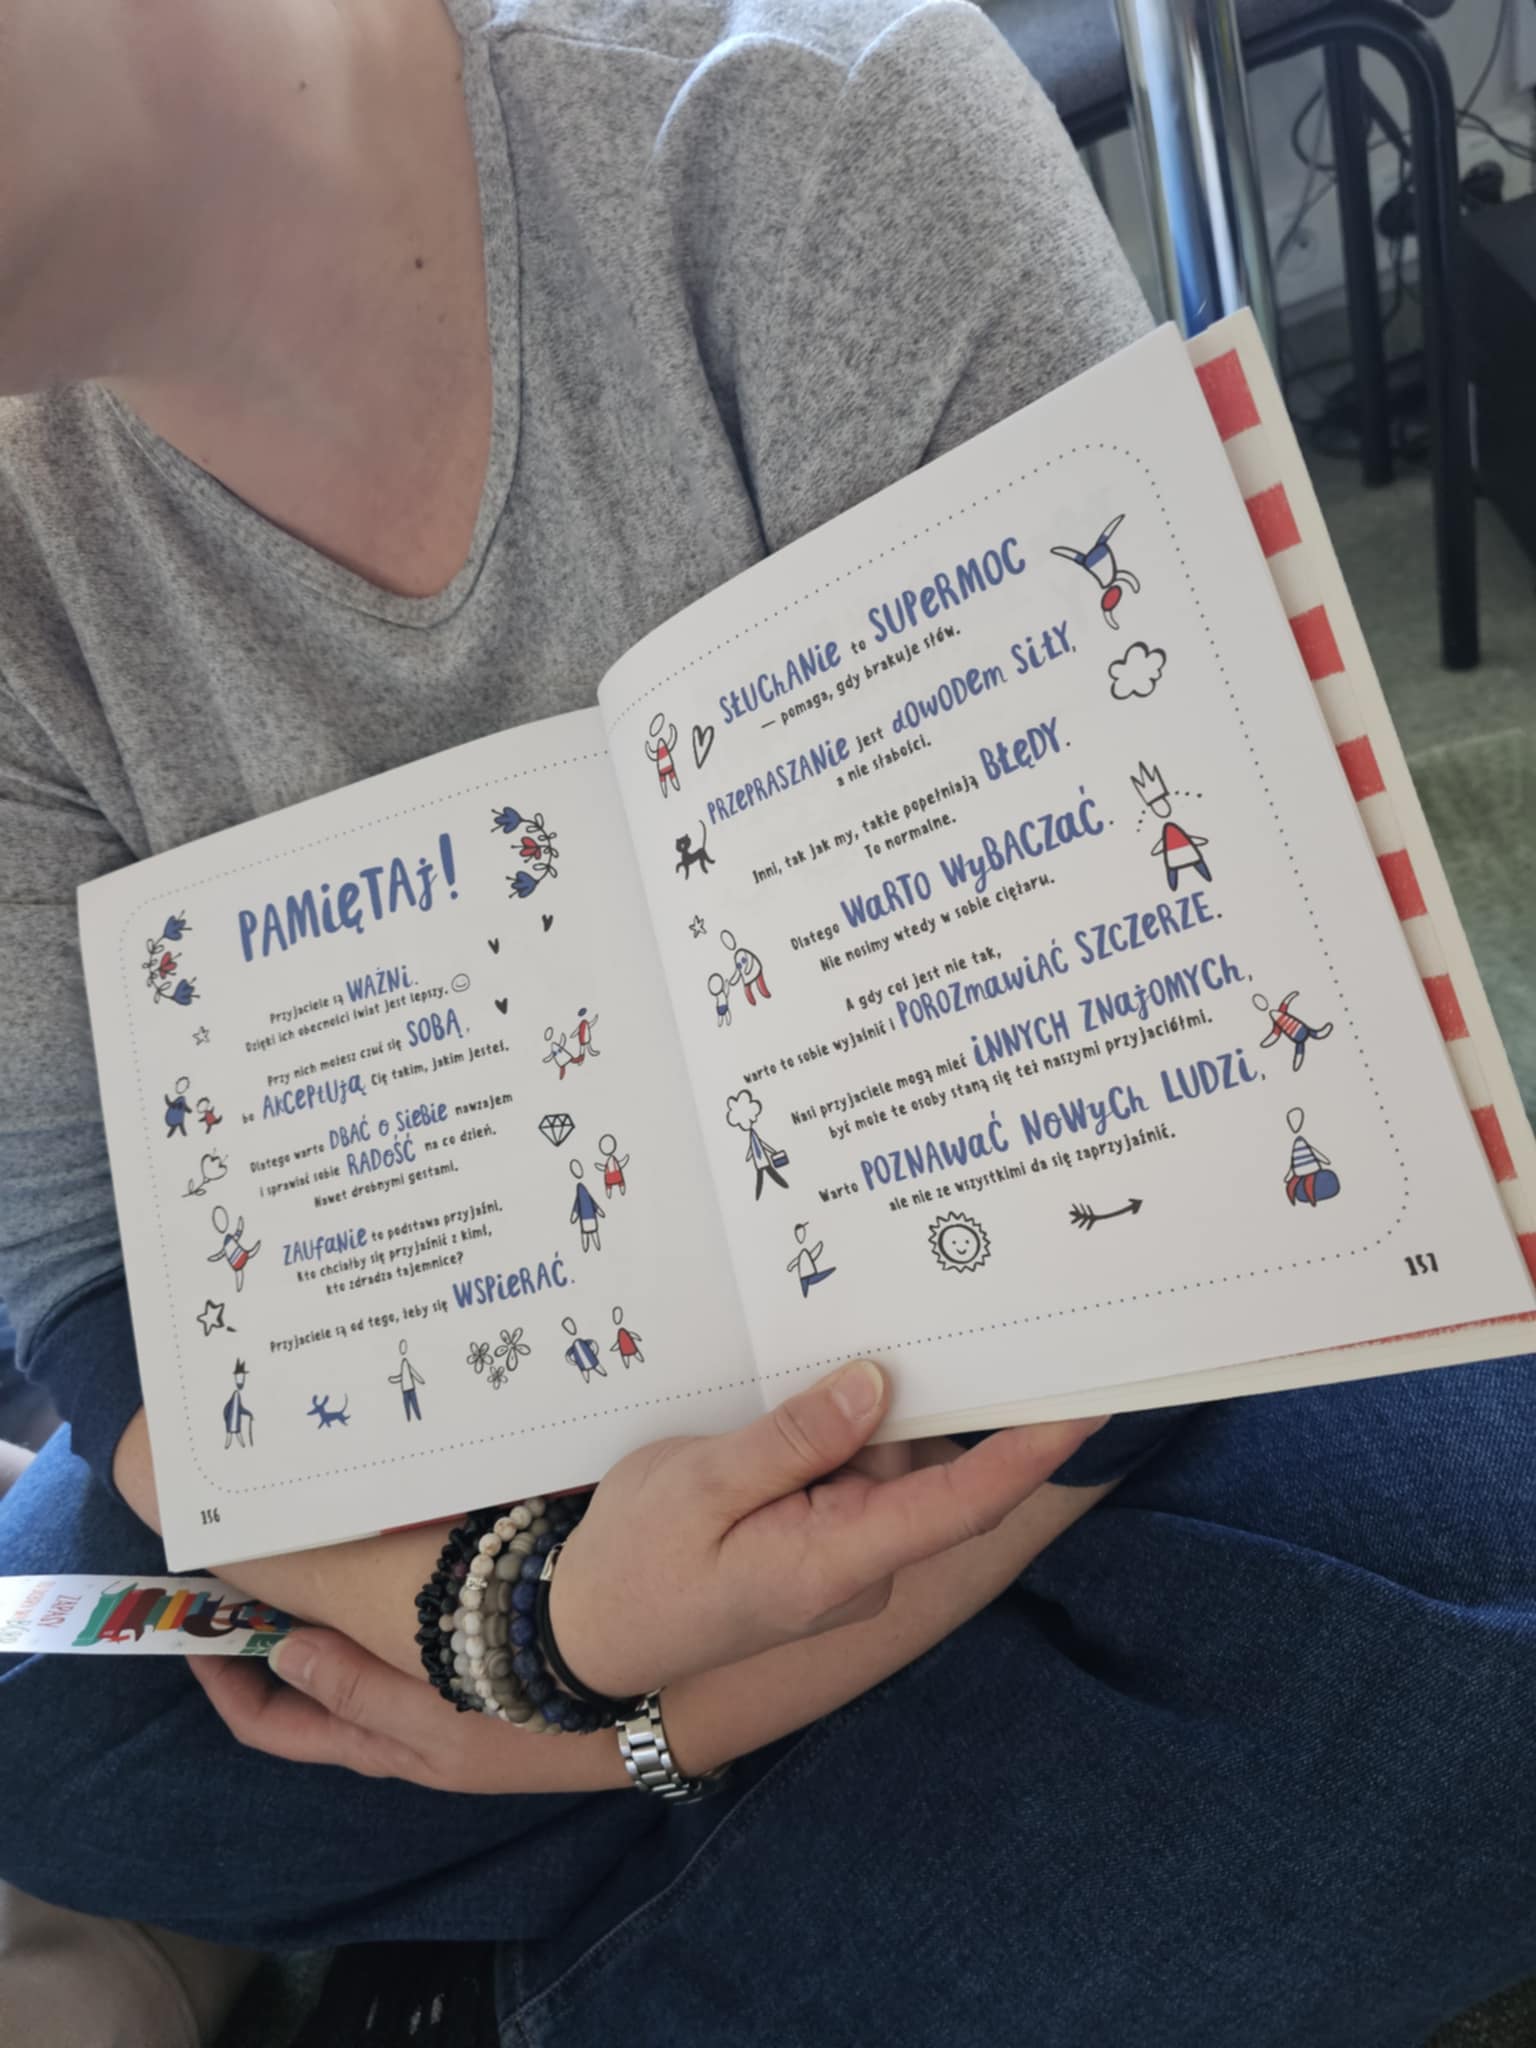 PAMIĘTAJ!
Przyjaciele są WAŻNI.
Dzięki ich obecności świat jest lepszy.
Przy nich możesz czuć się SOBĄ,
bo AKCEPTUJĄ Cię takim, jakim jesteś.
Dlatego warto DBAĆ O SIEBIE nawzajem
i sprawiać sobie RADOŚĆ na co dzień.
Nawet drobnymi gestami.
ZAUFANIE to podstawa przyjaźni.
Kto chciałby się przyjaźnić z kimś,
kto zdradza tajemnice?
Przyjaciele są od tego, żeby się WSPIERAĆ.
156
SŁUCHANIE to SUPERMOC
— pomaga, gdy brakuje słów.
PRZEPRASZANIE jest DOWODEM SIŁY,
a nie słabości.
Inni, tak jak my, także popełniają BŁĘDY.
To normalne.
Dlatego WARTO WYBACZAĆ.
Nie nosimy wtedy w sobie ciężaru.
A gdy coś jest nie tak,
warto to sobie wyjaśnić i POROZMAWIAĆ SZCZERZE.
Nasi przyjaciele mogą mieć INNYCH ZNAJOMYCH,
być może te osoby staną się też naszymi przyjaciółmi.
Warto POZNAWAĆ NOWYCH LUDZI,
ale nie ze wszystkimi da się zaprzyjaźnić.
157
ZAPASY